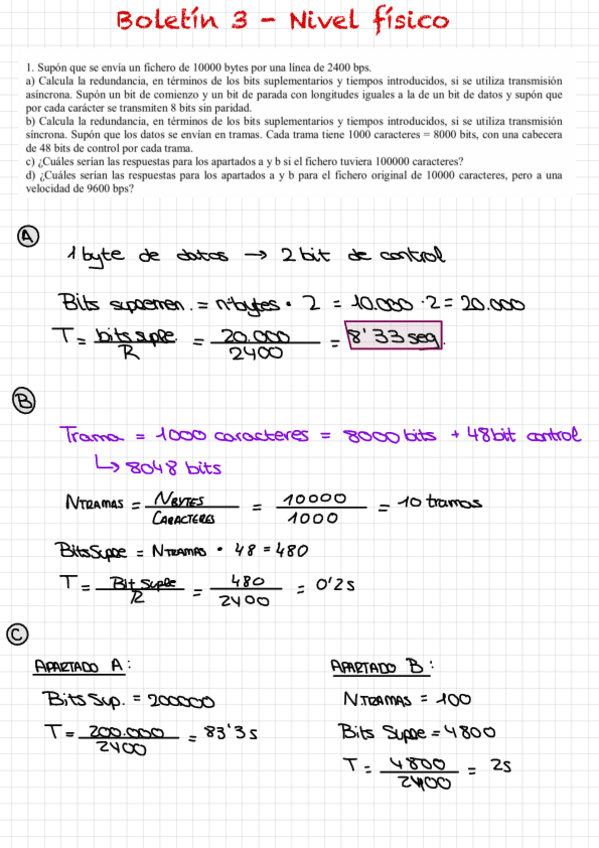 Boletín 3 - Nivel físico
1. Supón que se envía un fichero de 10000 bytes por una línea de 2400 bps.
a) Calcula la redundancia, en términos de los bits suplementarios y tiempos introducidos, si se utiliza transmisión
asíncrona. Supón un bit de comienzo y un bit de parada con longitudes iguales a la de un bit de datos y supón que
por cada carácter se transmiten 8 bits sin paridad.
b) Calcula la redundancia, en términos de los bits suplementarios y tiempos introducidos, si se utiliza transmisión
síncrona. Supón que los datos se envían en tramas. Cada trama tiene 1000 caracteres = 8000 bits, con una cabecera
de 48 bits de control por cada trama.
c) ¿Cuáles serían las respuestas para los apartados a y b si el fichero tuviera 100000 caracteres?
d) ¿Cuáles serían las respuestas para los apartados a y b para el fichero original de 10000 caracteres, pero a una
velocidad de 9600 bps?
A
1 byte de datos → 2 bit de control
Bits suplemen. = nº bytes · 2 = 10.000 · 2 = 20.000
T = bits suple. / R = 20.000 / 2400 = 8'33 seg.
B
Trama = 1000 caracteres = 8000 bits + 48 bit control
↳ 8048 bits
NTRAMAS = NBYTES / CARACTERES = 10000 / 1000 = 10 tramas
Bits Suple = NTRAMAS · 48 = 480
T = Bit Suple / R = 480 / 2400 = 0'2s
C
APARTADO A:
Bits Sup. = 200000
T = 200.000 / 2400 = 83'3s
APARTADO B:
N.TRAMAS = 100
Bits Suple = 4800
T = 4800 / 2400 = 2s